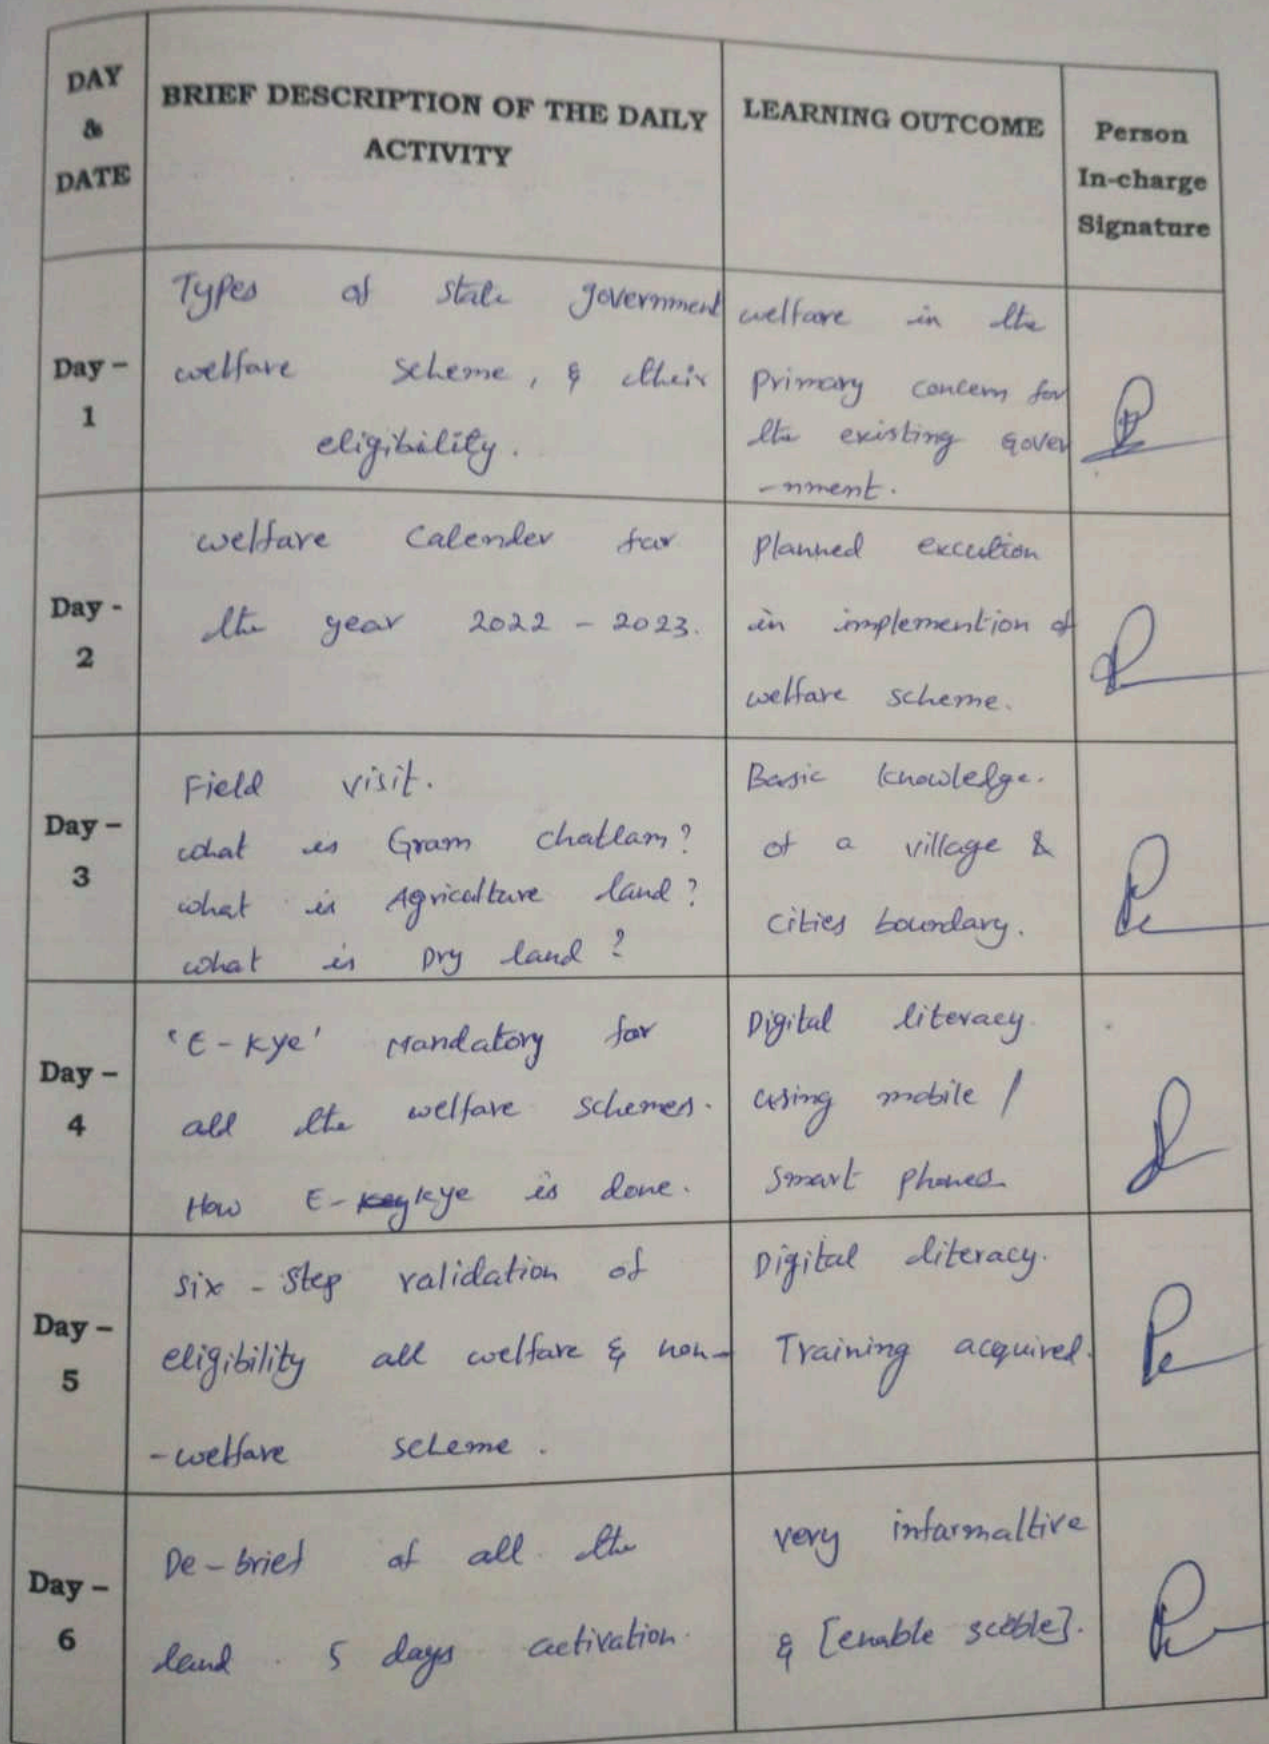 DAY
&
DATE
BRIEF DESCRIPTION OF THE DAILY
ACTIVITY
LEARNING OUTCOME
Person
In-charge
Signature
Day -
1
Types of state government
welfare scheme, & their
eligibility.
welfare in the
primary concern for
the existing Gover
-nment.
Day -
2
welfare Calender for
the year 2022 - 2023.
Planned excution
in implemention of
welfare scheme.
Day -
3
Field visit.
what is Gram chatlam?
what is Agriculture land?
what is Dry land ?
Basic knowledge.
of a village &
cities boundary.
Day -
4
'E-kye' Mandatory for
all the welfare schemes.
How E-kye is done.
Digital literacy.
using mobile /
smart phones
Day -
5
six - step validation of
eligibility all welfare & non-
-welfare scheme.
Digital literacy.
Training acquired.
Day -
6
De-brief of all the
5 days activation.
very informaltive
& [enable].